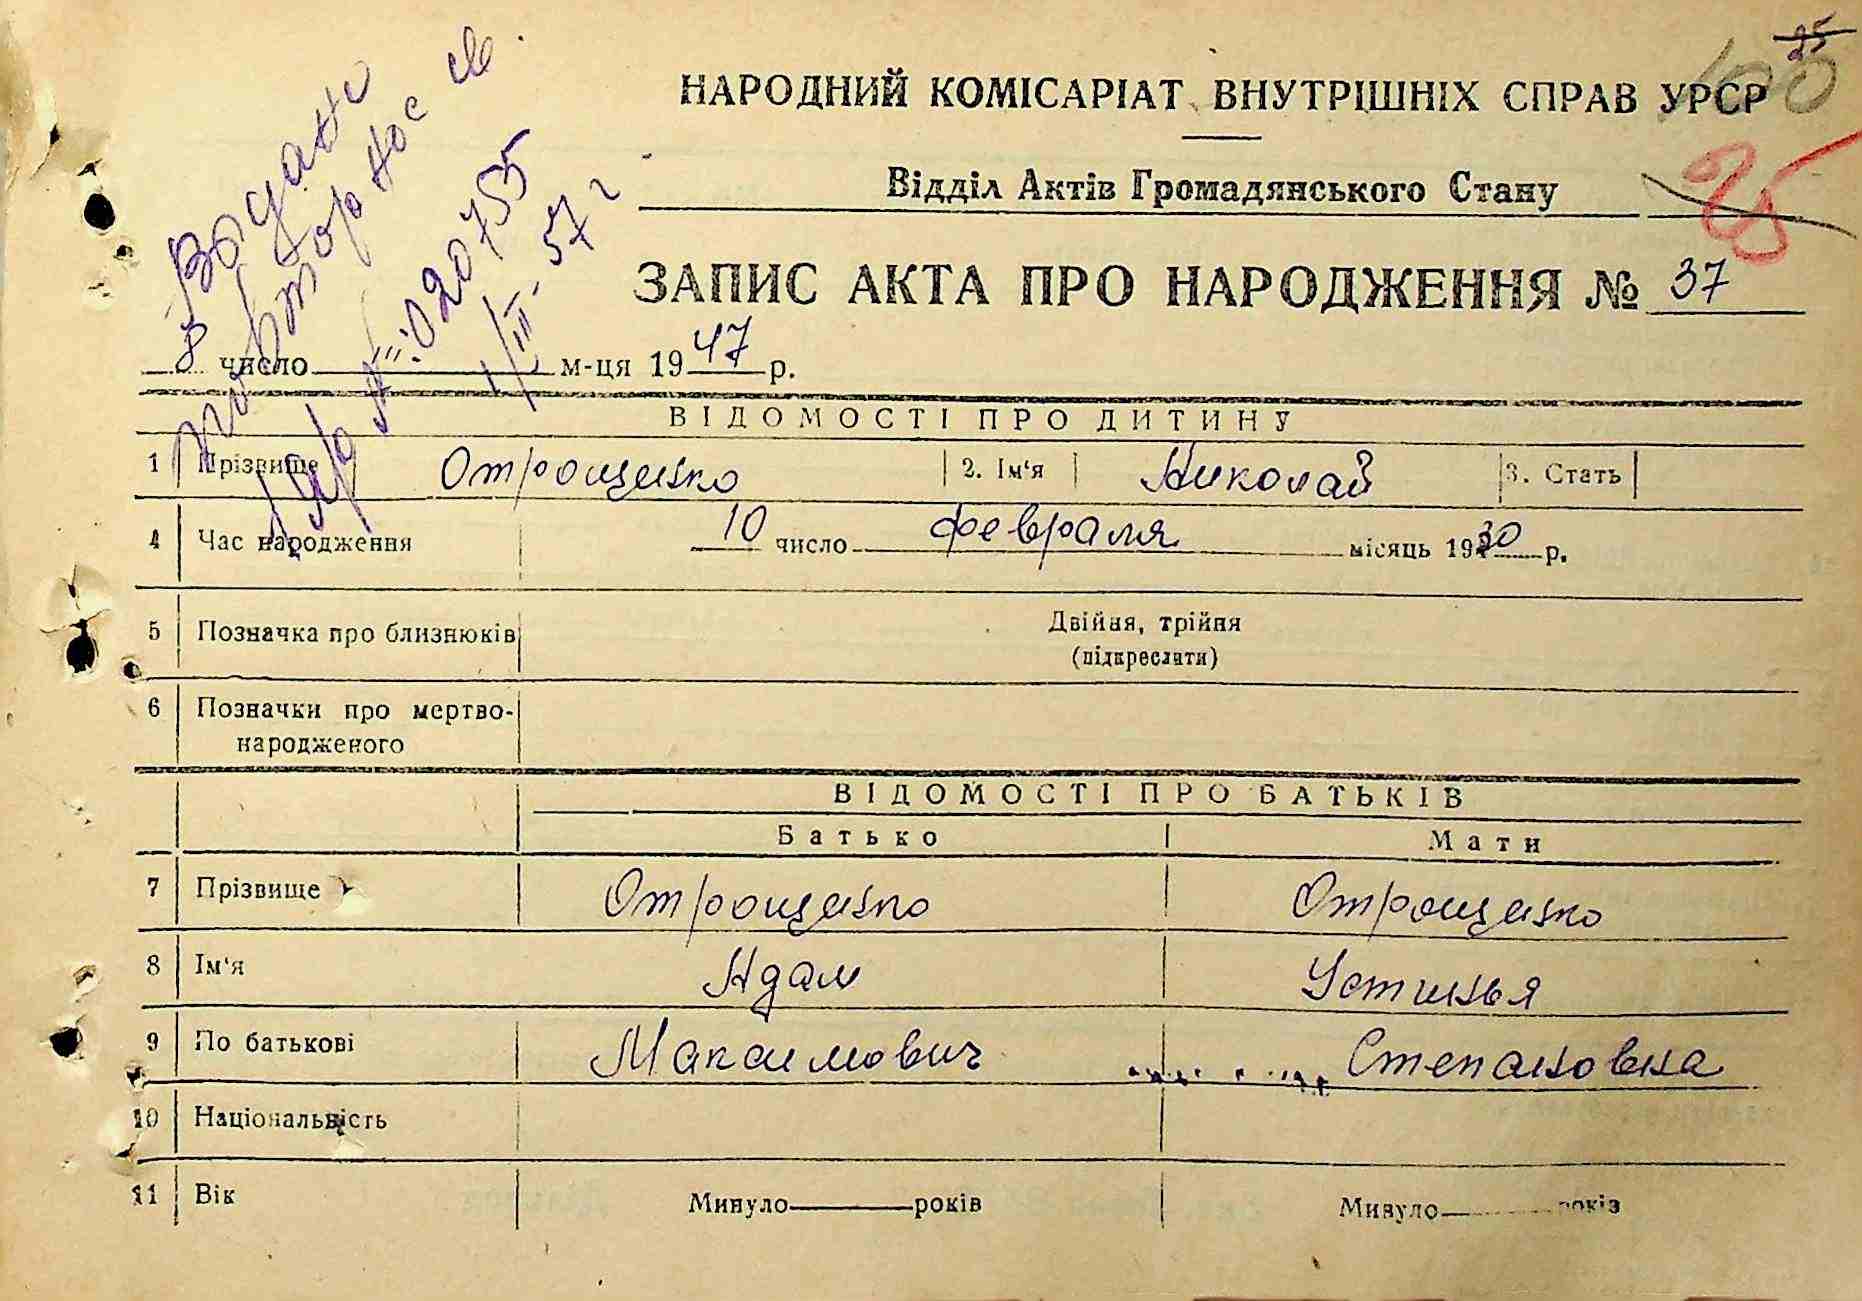 25
100
НАРОДНИЙ КОМІСАРІАТ ВНУТРІШНІХ СПРАВ УРСР
25
Відділ Актів Громадянського Стану
ЗАПИС АКТА ПРО НАРОДЖЕННЯ № 37
Выдано
повторное св.
020755
1/III-57 г
8 число м-ця 1947 р.
ВІДОМОСТІ ПРО ДИТИНУ
1 Прізвище Отрощенко 2. Ім'я Николай 3. Стать
4 Час народження 10 число февраля місяць 1930 р.
5 Позначка про близнюків Двійня, трійня
(підкреслити)
6 Позначки про мертво-
народженого
ВІДОМОСТІ ПРО БАТЬКІВ
Батько Мати
7 Прізвище Отрощенко Отрощенко
8 Ім'я Адам Устинья
9 По батькові Максимович Степановна
10 Національність
11 Вік Минуло років Минуло років